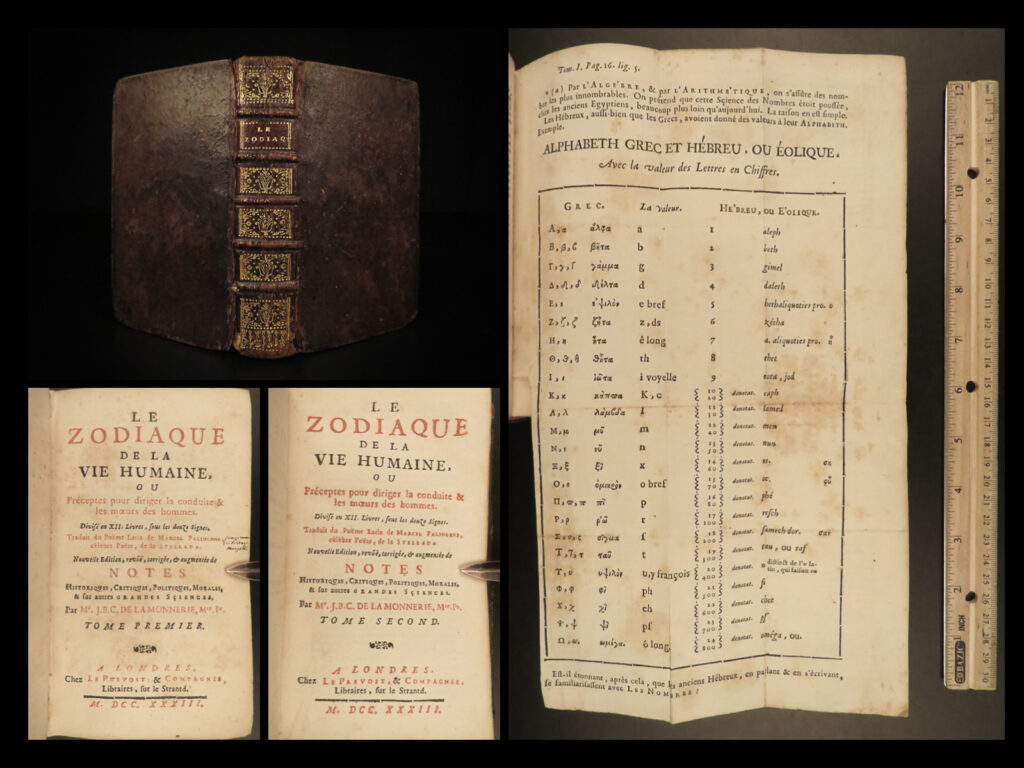 LE
ZODIAQ
LE
ZODIAQUE
DE LA
VIE HUMAINE,
OU
Préceptes pour diriger la conduite &
les mœurs des hommes.
Divisé en XII. Livres, sous les douze Signes.
Traduit du Poëme Latin de MARCEL PALINGENE,
célèbre Poëte, de la STELLADA.
Nouvelle Edition, revûë, corrigée, & augmentée de
NOTES
HISTORIQUES, CRITIQUES, POLITIQUES, MORALES,
& sur autres GRANDES SÇIENCES.
Par Mr. J.B.C. DE LA MONNERIE,
TOME PREMIER.
A LONDRES,
Chez LE PREVOST, & COMPAGNIE,
Libraires, sur le Strand.
M. DCC. XXXIII.
LE
ZODIAQUE
DE LA
VIE HUMAINE,
OU
Préceptes pour diriger la conduite &
les mœurs des hommes.
Divisé en XII. Livres, sous les douze Signes.
Traduit du Poëme Latin de MARCEL PALINGENE,
célèbre Poëte, de la STELLADA.
Nouvelle Edition, revûë, corrigée, & augmentée de
NOTES
HISTORIQUES, CRITIQUES, POLITIQUES, MORALES,
& sur autres GRANDES SÇIENCES.
Par Mr. J.B.C. DE LA MONNERIE,
TOME SECOND.
A LONDRES,
Chez LE PREVOST, & COMPAGNIE,
Libraires, sur le Strand.
M. DCC. XXXIII.
Tom. I. Pag. 26. lig. 5.
(a) Par L'ALGEBRE, & par L'ARITHMETIQUE, on s'assûre des nom-
bres les plus innombrables. On prétend que cette Sçience des Nombres étoit poussée,
chez les anciens Egyptiens, beaucoup plus loin qu'aujourd'hui. La raison en est simple.
Les Hébreux, aussi-bien que les Grecs, avoient donné des valeurs à leur ALPHABETH.
Exemple.
ALPHABETH GREC ET HÉBREU, OU ÉOLIQUE.
Avec la valeur des Lettres en Chiffres.
GREC. La valeur. HE'BREU, OU E'OLIQUE.
Α, α ἄλφα a 1 aleph
Β, β, ϐ βῆτα b 2 beth
Γ, γ γάμμα g 3 gimel
Δ, δ δέλτα d 4 daleth
Ε, ε ἐψιλὸν e bref 5
Ζ, ζ ζῆτα z, ds 6
Η, η ἦτα ê long 7 a. aliquoties pro.
Θ, ϑ, θ θῆτα th 8 thet
Ι, ι ἰῶτα i voyelle 9 iota, jod
Κ, κ κάππα K, c 10 20 denotat. caph
Λ, λ λάμβδα l denotat. lamed
Μ, μ μῦ m denotat. men
Ν, ν νῦ n denotat. nun
Ξ, ξ ξῖ x denotat.
Ο, ο ὀμικρὸν o bref denotat.
Π, ϖ, π πῖ p denotat. phé
Ρ, ρ ῥῶ r denotat. resch
Σ, σ, ς σῖγμα ſ denotat.
Τ, τ ταῦ t denotat. tau, ou taf
Υ, υ ὐψιλὸν u, y françois denotat.
Φ, φ φῖ ph denotat.
Χ, χ χῖ ch denotat.
Ψ, ψ ψῖ pſ denotat.
Ω, ω ὠμέγα ô long denotat. oméga, ou.
Est-il étonnant, après cela, que les anciens Hébreux, en parlant & en s'écrivant,
se familiarisassent avec LES NOMBRES?
12
11
10
9
8
7
6
5
4
3
2
INCH
BAZIC